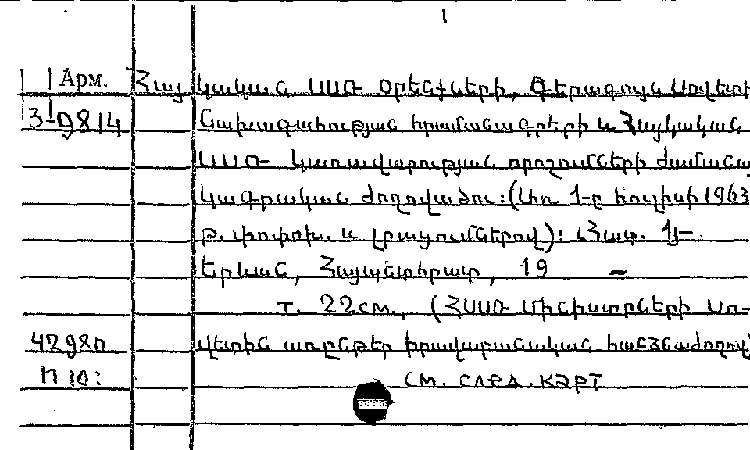 1
Арм. Հայկական ՍՍՌ օրենքների, Գերագույն Սովետի
3-1984 Նախագահության հրամանագրերի և Հայկական
ՍՍՌ Կառավարության որոշումների ժամանա
կագրական ժողովածու: (Առ 1-ը հուլիսի 1963
թ. փոփոխ. և լրացումներով): Հատ. 1-
Երևան, Հայպետհրատ, 19 –
т. 22 см., (ՀՍՍՌ Մինիստրների Սո-
վետին առընթեր իրավաբանական հանձնաժողով
См. след. карт